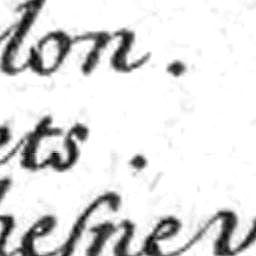 lon.
ets.
heſnev